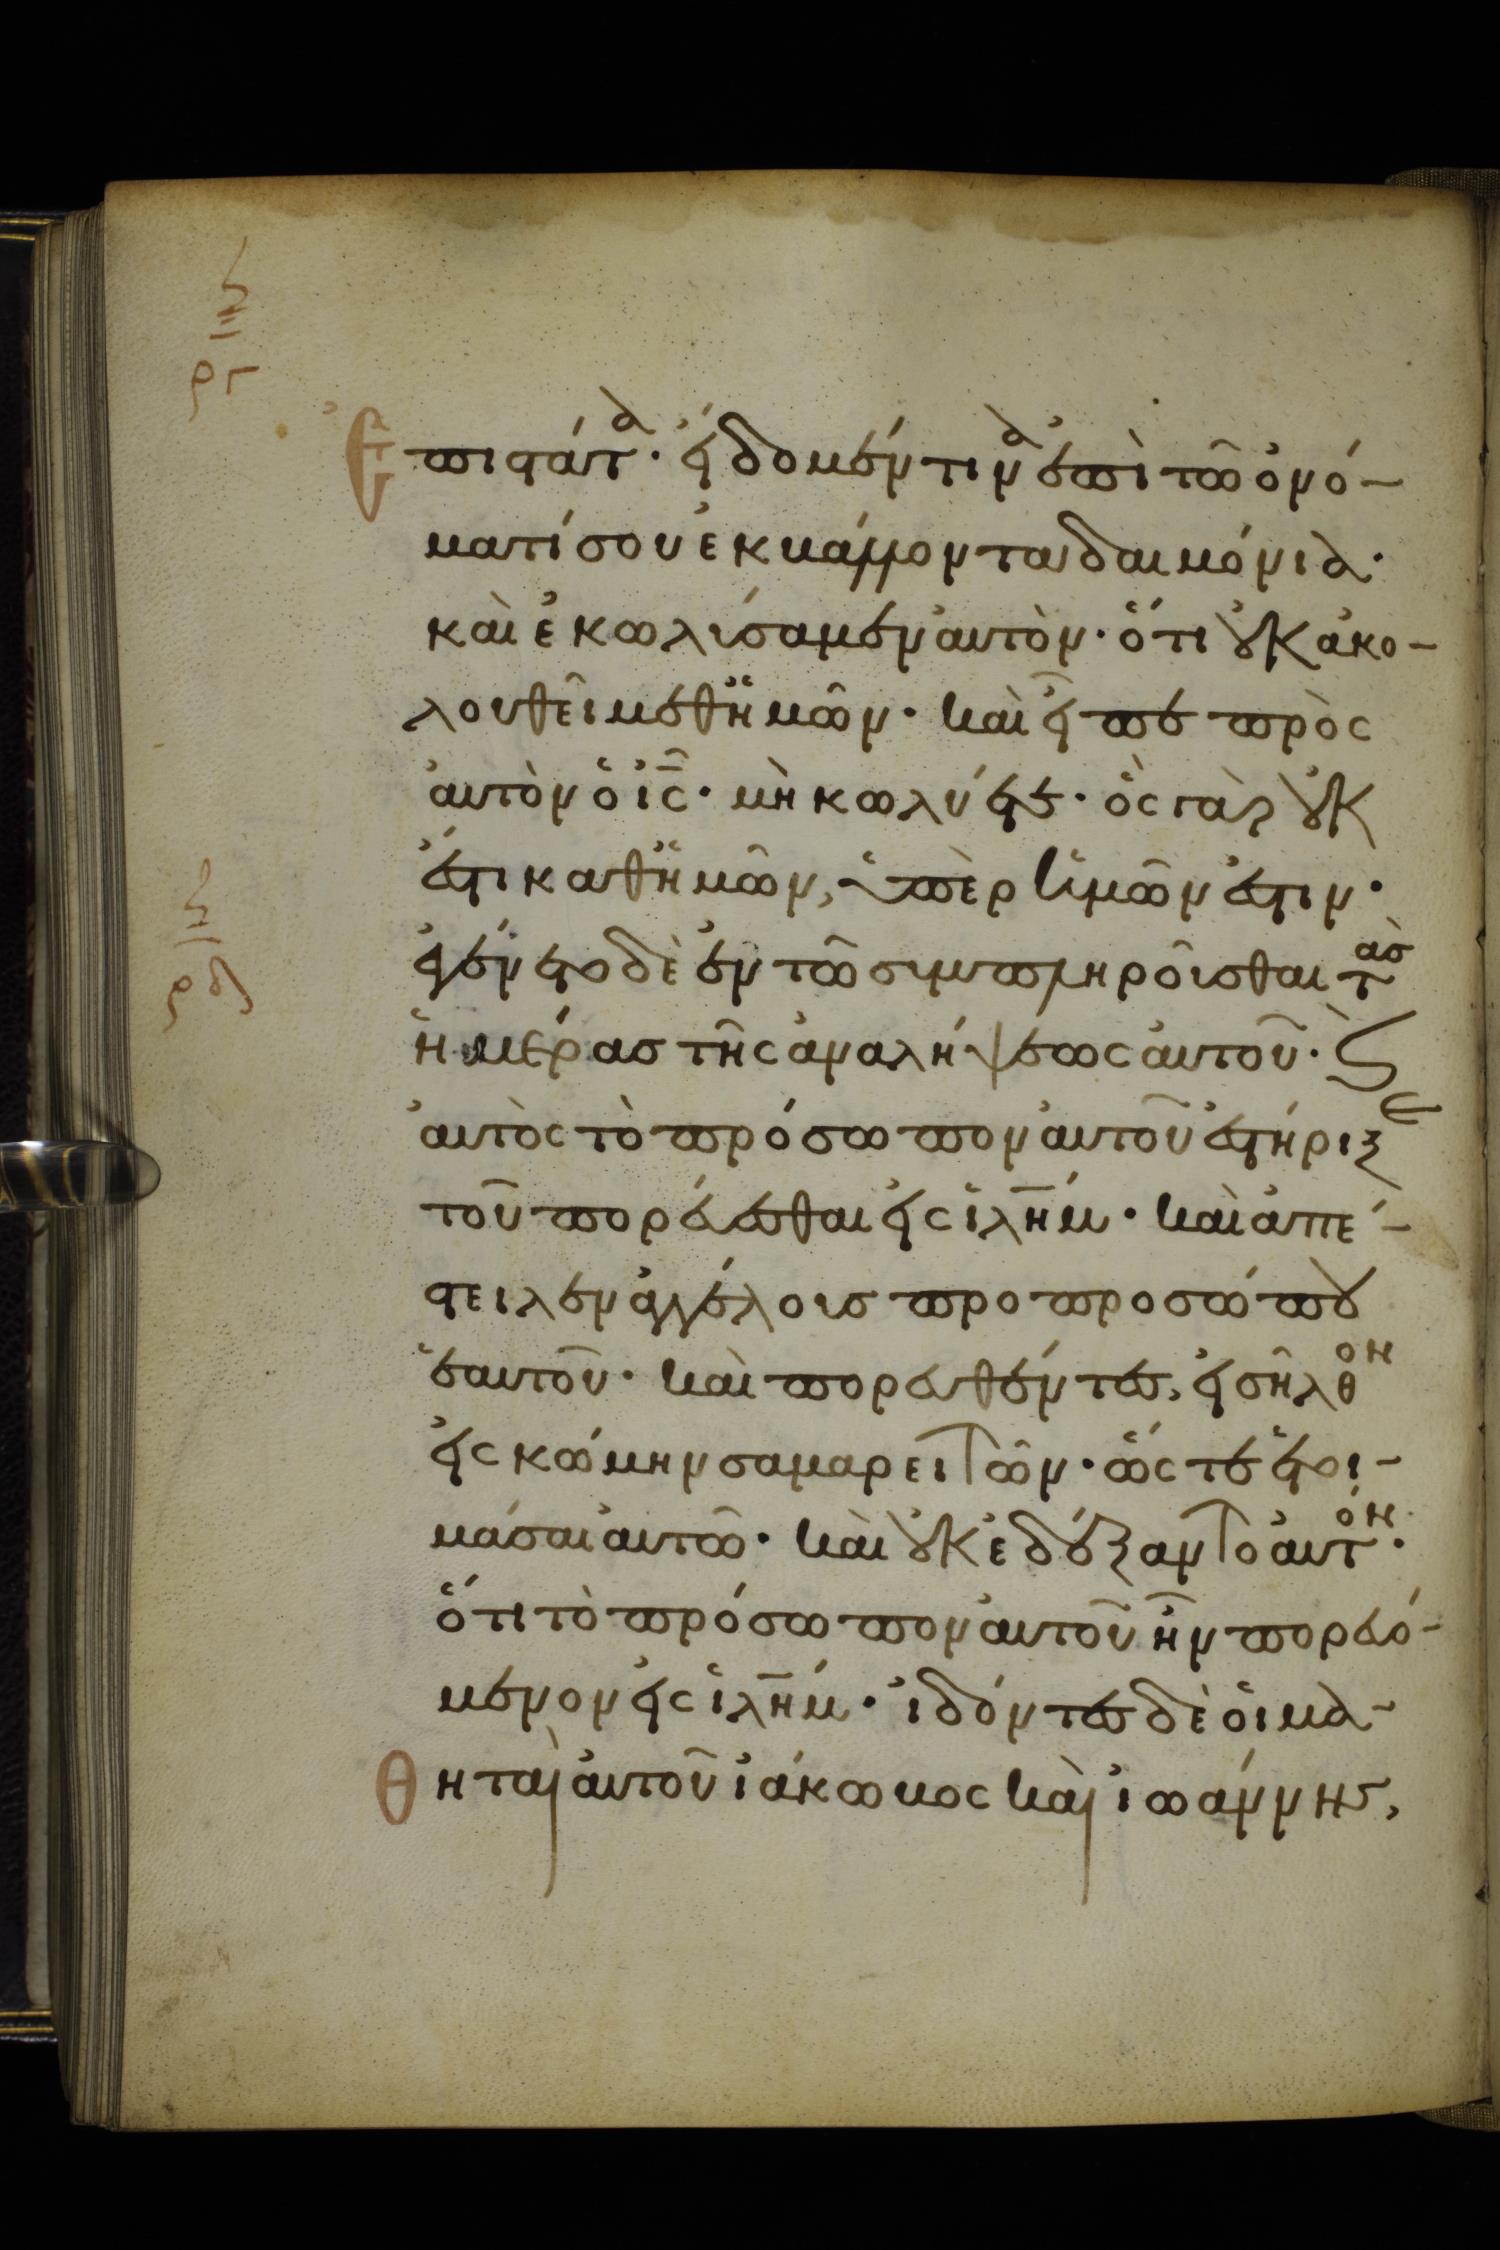 ϟγ
η
ϟδ
ι
Ἐπιστάτα· εἴδομέν τινὰ ἐπὶ τῶ ὀνό-
ματί σου ἐκβάλλοντα δαιμόνια·
καὶ ἐκωλύσαμεν αὐτὸν· ὅτι οὐκ ἀκο-
λουθεῖ μεθ ἡμῶν· καὶ εἶπε πρὸς
αὐτὸν ὁ ις· μὴ κωλύετε· ὃς γὰρ οὐκ
ἔστι καθ ἡμῶν, ὑπὲρ ἡμῶν ἐστιν·
ἐγένετο δὲ ἐν τῶ συμπληροῦσθαι τὰς
ἡμέρας τῆς ἀναλήψεως αὐτοῦ· καὶ
αὐτὸς τὸ πρόσωπον αὐτοῦ ἐστήριξε
τοῦ πορεύεσθαι εἰς ιλημ· καὶ ἀπέ-
στειλεν ἀγγέλους προ προσώπου
ἑαυτοῦ· καὶ πορευθέντες, εἰσῆλθον
εἰς κώμην σαμαρειτῶν· ὥστε ἑτοι-
μάσαι αὐτῶ· καὶ οὐκ ἐδέξαντο αὐτόν·
ὅτι τὸ πρόσωπον αὐτοῦ ἦν πορευό-
μενον εἰς ιλημ· ἰδόντες δὲ οἱ μα-
θηταὶ αὐτοῦ ἰάκωβος καὶ ἰωάννης,